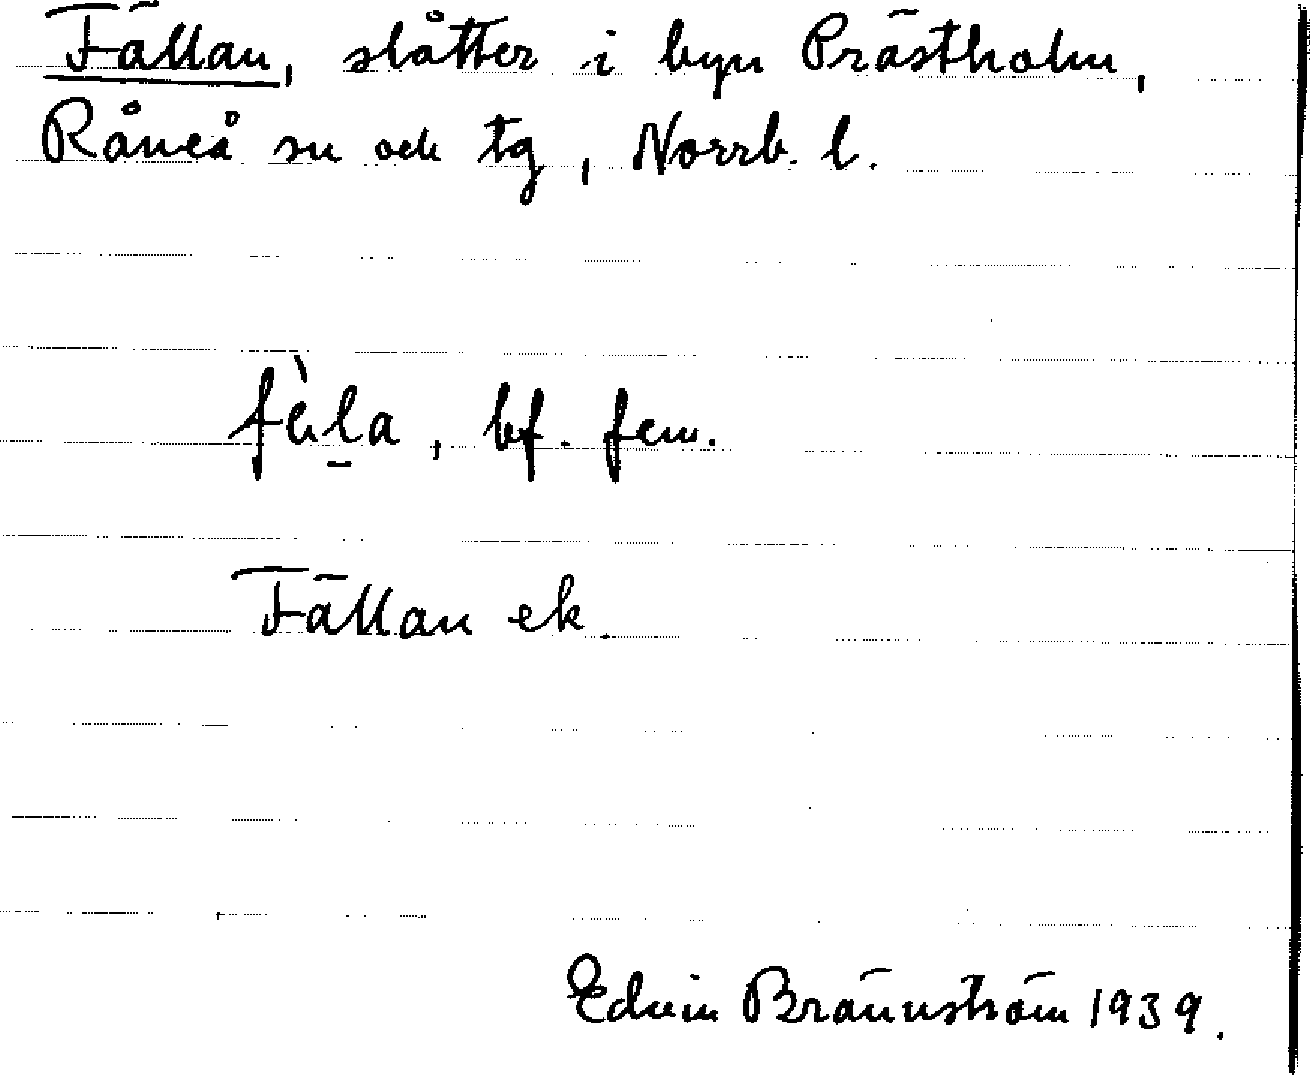 Fällan, slåtter i byn Prästholm,
Råneå sn och tg, Norrb. l.
bf. fem.
Fällan ek.
Edvin Brännström 1939.